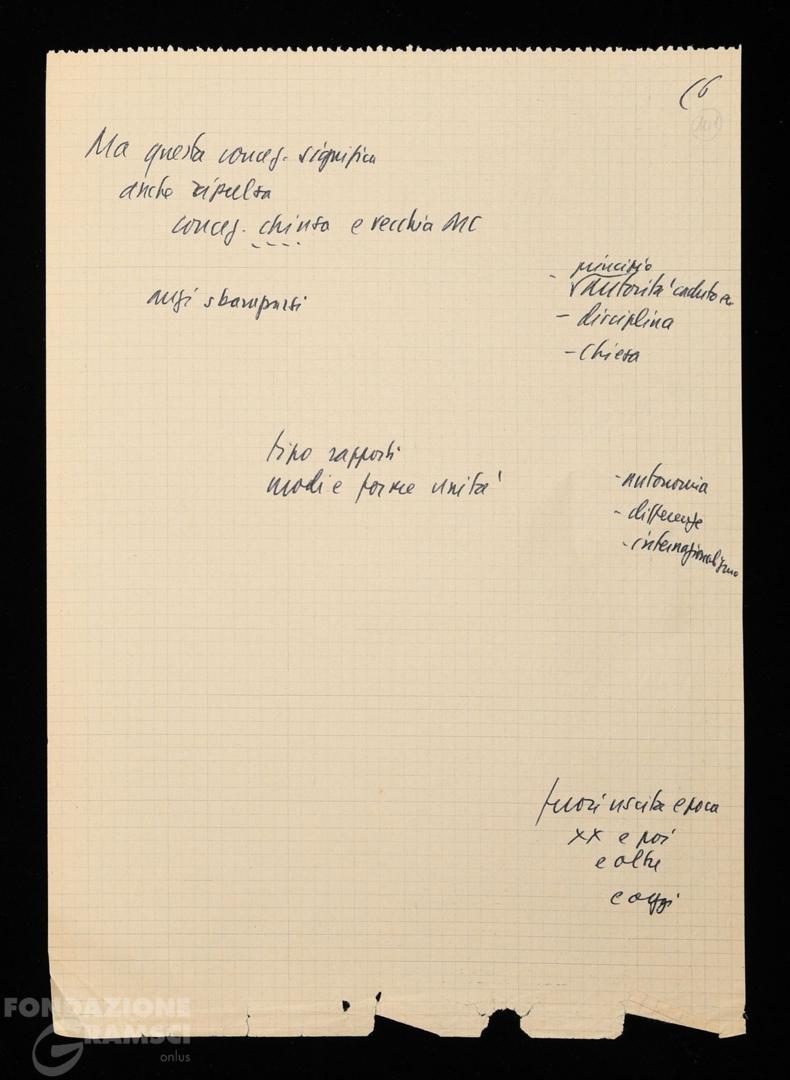 (6
Ma questa conceз. significa
anche ripulsa
concez. chiusa e vecchia MC
principio
- autorità caduto
- disciplina
- Chiesa
anzi
tipo rapporti
modi e forme unità
- autonomia
- differenze
- internazionalismo
fuoriuscita epoca
XX e poi
e oltre
e oggi
FONDAZIONE
GRAMSCI
onlus